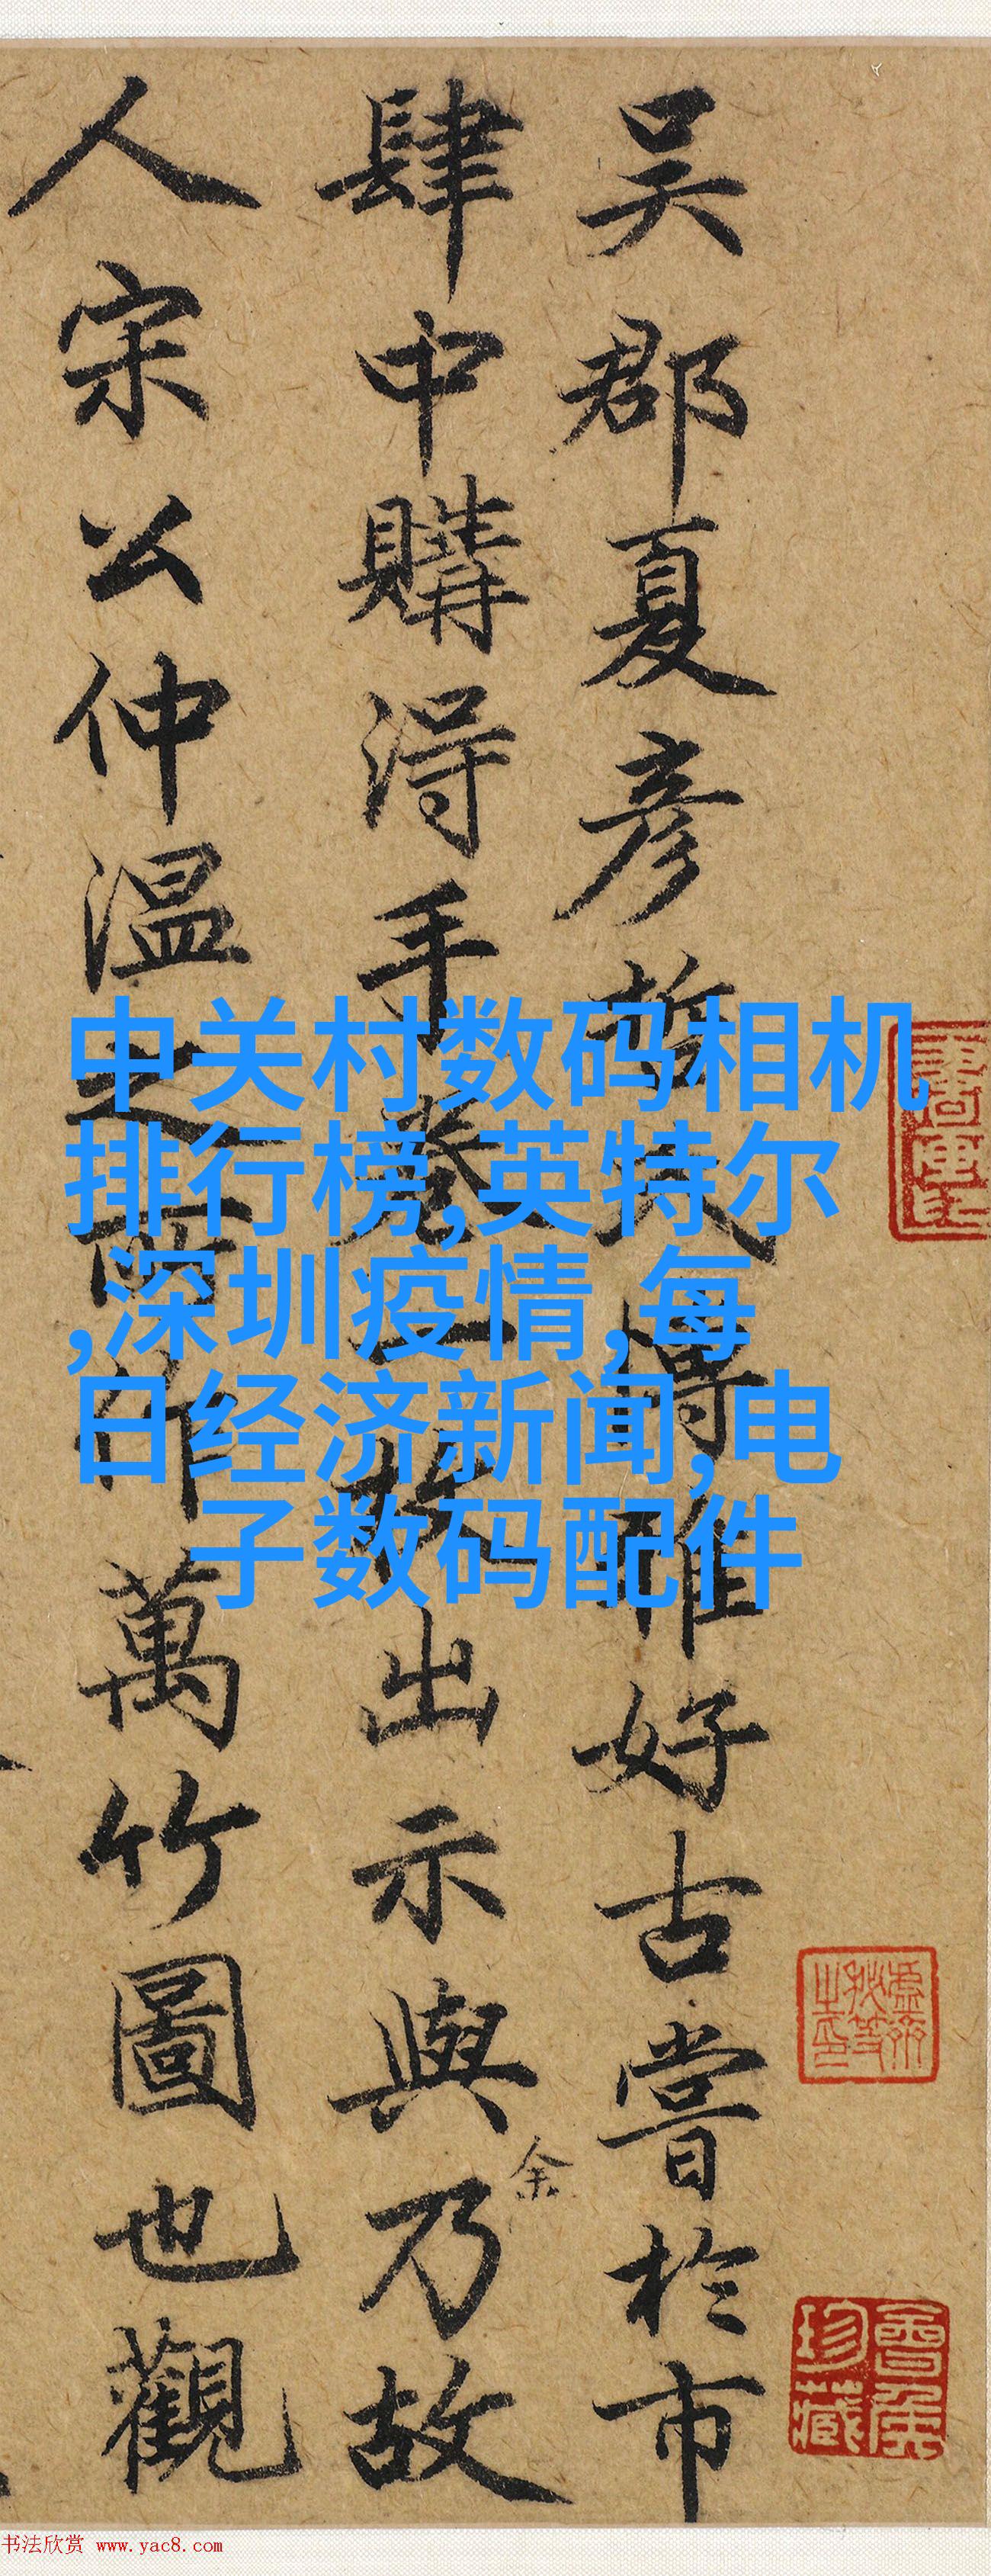 吴郡夏彦哲氏博雅好古嘗於市
肆中購淂手卷一故出示與余乃故
人宋公仲溫之所作萬竹圖也觀
中关村数码相机
排行榜,英特尔
,深圳疫情,每
日经济新闻,电
子数码配件
珍藏
书法欣赏 www.yac8.com